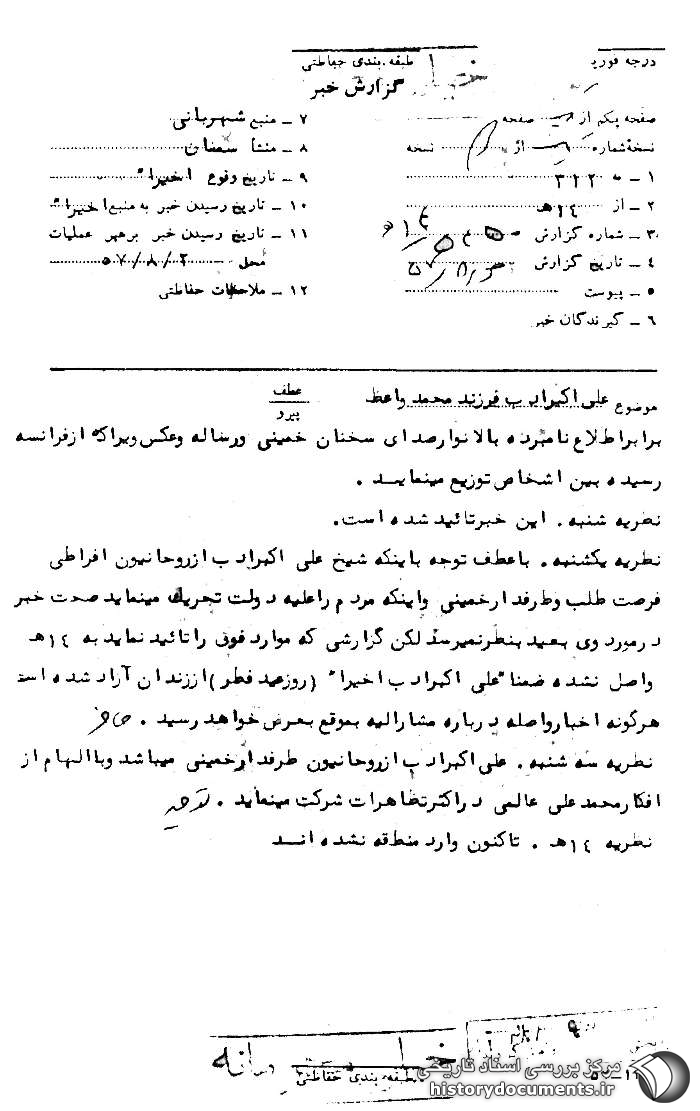 درجه فوریت
طبقه بندی حفاظتی
گزارش خبر
صفحه یکم از صفحه
نسخه شماره از نسخه
۱ ـ به ۳۱۲
۲ ـ از ۱۴هـ
۳ ـ شماره گزارش
۴ ـ تاریخ گزارش
۵ ـ پیوست
۶ ـ گیرندگان خبر
۷ ـ منبع شهربانی
۸ ـ منشأ سمنان
۹ ـ تاریخ وقوع اخیراً
۱۰ ـ تاریخ رسیدن خبر به منبع اخیراً
۱۱ ـ تاریخ رسیدن خبر برهبر عملیات
محل ۵۷/۸/۲
۱۲ ـ ملاحظات حفاظتی
موضوع علی اکبرادب فرزند محمد واعظ
عطف
پیرو
برابر اطلاع نامبرده بالا نوار صدای سخنان خمینی و رساله و عکس ویرا که از فرانسه
رسیده بین اشخاص توزیع مینماید .
نظریه شنبه . این خبر تائید شده است.
نظریه یکشنبه . با عطف توجه باینکه شیخ علی اکبرادب از روحانیون افراطی
فرصت طلب و طرفدار خمینی و اینکه مردم را علیه دولت تحریک مینماید صحت خبر
در مورد وی بعید بنظر نمیرسد لکن گزارشی که موارد فوق را تائید نماید به ۱۴هـ
واصل نشده ضمنا" علی اکبرادب اخیرا" (روز عید فطر) از زندان آزاد شده است
هرگونه اخبار واصله درباره مشارالیه بموقع بعرض خواهد رسید .
نظریه سه شنبه . علی اکبرادب از روحانیون طرفدار خمینی میباشد و با الهام از
افکار محمد علی عالمی در اکثر تظاهرات شرکت مینماید .
نظریه ۱۴هـ . تاکنون وارد منطقه نشده اند
طبقه بندی حفاظتی
مرکز بررسی اسناد تاریخی
historydocuments.ir